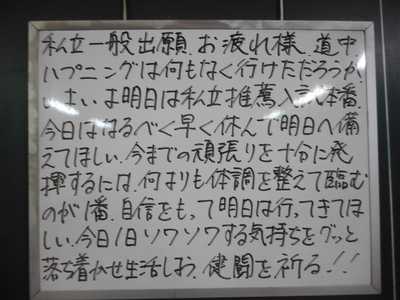 私立一般出願、お疲れ様。道中
ハプニングは何もなく行けただろうか?
いよいよ明日は私立推薦入試本番。
今日はなるべく早く休んで明日へ備
えてほしい。今までの頑張りを十分に発
揮するには、何よりも体調を整えて臨む
のが1番。自信をもって明日は行ってきてほ
しい。今日1日ソワソワする気持ちをグッと
落ち着かせ生活しよう。健闘を祈る!!